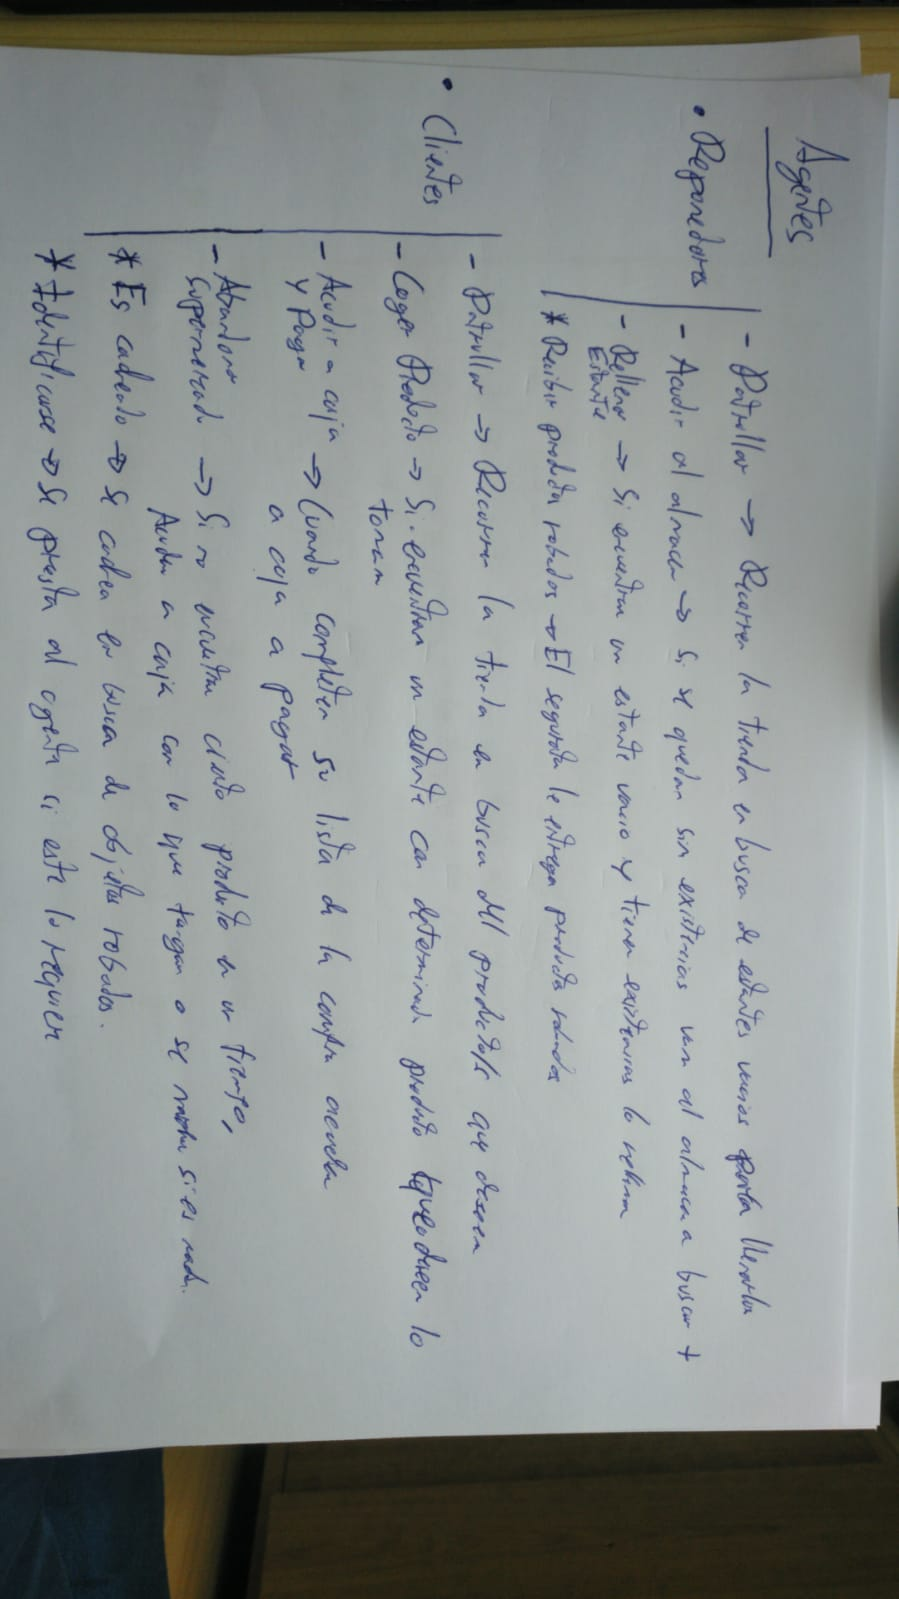 Agentes
• Reponedores
- Patrullar → Recorren la tienda en busca de estantes vacios para llenarlos
- Acudir al almacen → Si se quedan sin existencias van al almacen a buscar +
- Rellenar → Si encuentran un estante vacio y tienen existencias lo rellenan
Estante
* Recibir producto robados → El segurata le entrega producto robados
• Clientes
- Patrullar → Recorren la tienda en busca del producto que deseen
- Coger Producto → Si encuentran un estante con determinado producto lo
toman
- Acudir a caja → Cuando completen su lista de la compra acuden
y Pagar a caja a pagar
- Abandonar
Supermercado → Si no encuentran cierto producto en un tiempo,
Acuden a caja con lo que tengan o se marchan si es nada.
* Es cacheado → Se cachea en busca de objetos robados.
* Identificarse → Se presta al agente si este lo requiere